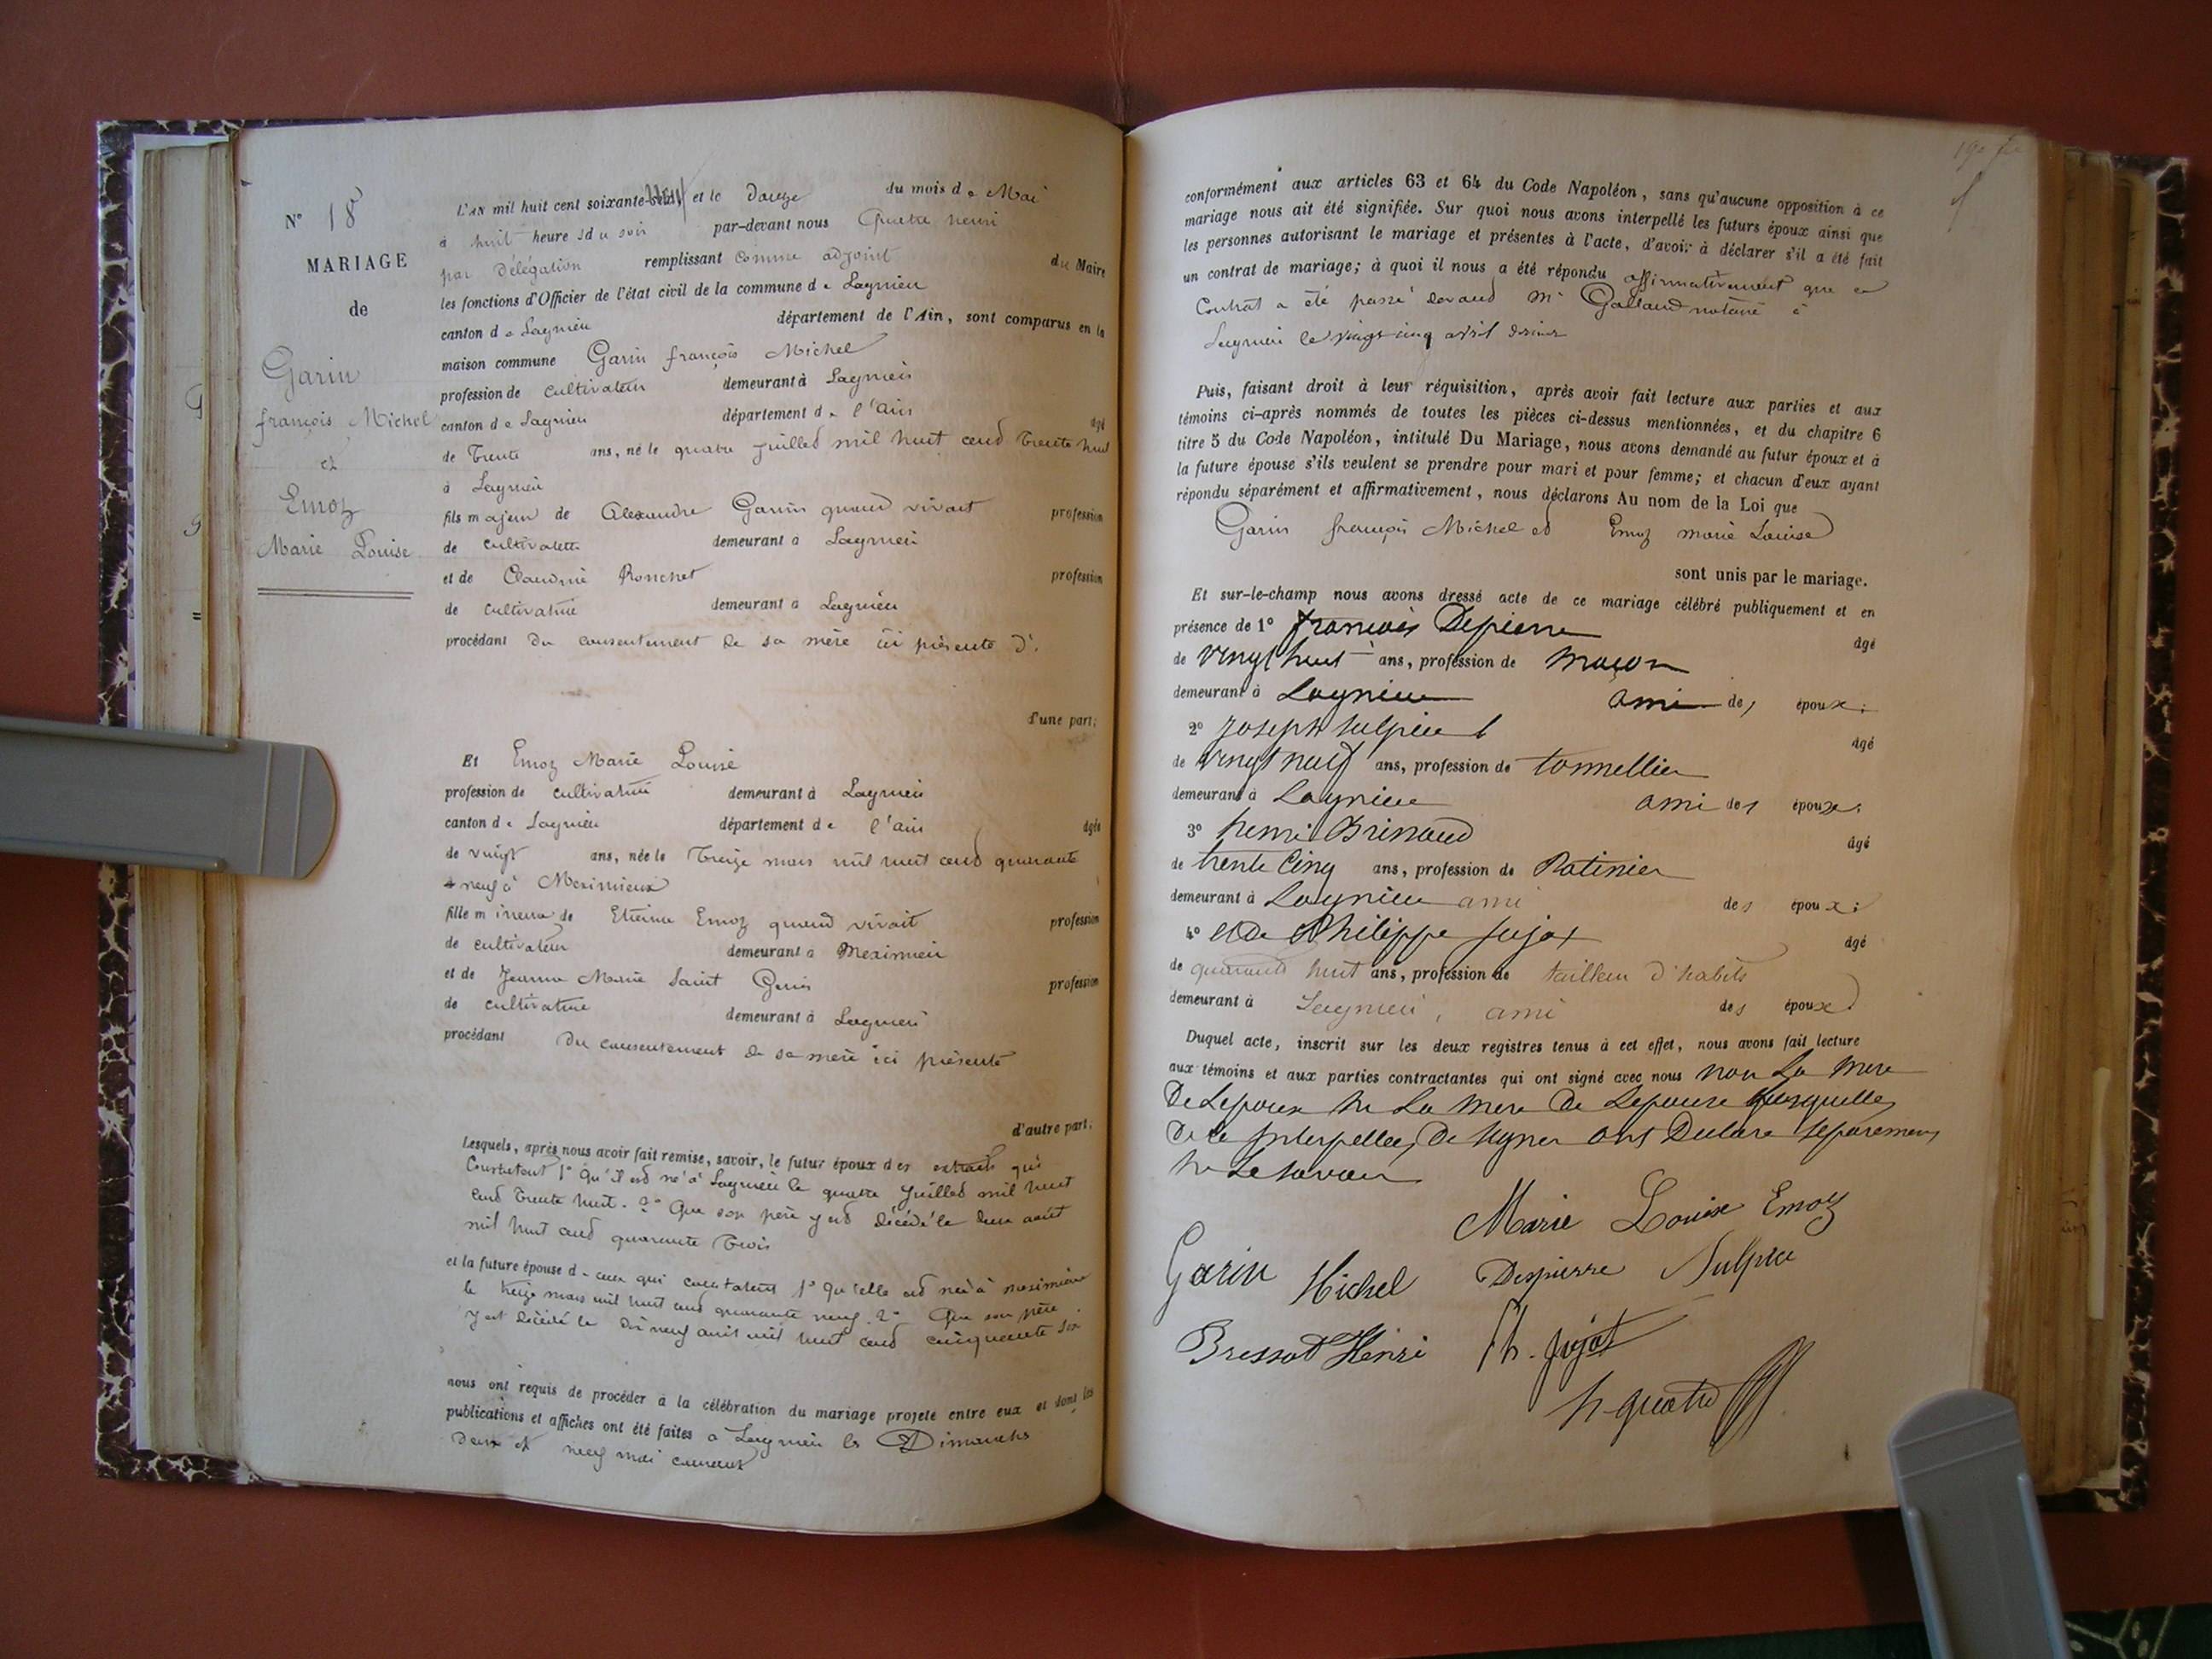 N° 18
MARIAGE
de
Garin
françois Michel
et
Emoz
Marie Louise
L'AN mil huit cent soixante- et le Douze du mois de Mai
à huit heures du soir par-devant nous Quatre henri
par Délégation remplissant comme adjoint du Maire
les fonctions d'Officier de l'état civil de la commune de Lagnieu
canton de Lagnieu département de l'Ain, sont comparus en la
maison commune Garin françois Michel
profession de cultivateur demeurant à Lagnieu
canton de Lagnieu département de l'ain âgé
de Trente ans, né le quatre juillet mil huit cent Trente huit
à Lagnieu
fils majeur de Alexandre Garin quand vivait profession
de cultivateur demeurant à Lagnieu
et de Claudine Ronchet profession
de cultivatrice demeurant à Lagnieu
procédant du consentement de sa mère ici présente d'.
d'une part;
Et Emoz Marie Louise
profession de cultivatrice demeurant à Lagnieu
canton de Lagnieu département de l'ain âgée
de vingt ans, née le Treize mars mil huit cent quarante
neuf à Meximieux
fille mineure de Etienne Emoz quand vivait profession
de cultivateur demeurant à Meximieu
et de Jeanne Marie Saint Genis profession
de cultivatrice demeurant à Lagnieu
procédant du consentement de sa mère ici présente
d'autre part;
Lesquels, après nous avoir fait remise, savoir, le futur époux des extraits qui
Constatent 1° Qu'il est né à Lagnieu le quatre Juillet mil huit
cent Trente huit. 2° Que son père y est décédé le deux août
mil huit cent quarante Trois
et la future épouse d ceux qui constatent 1° Qu'elle est née à meximieux
le treize mars mil huit cent quarante neuf 2° Que son père
y est décédé le dix neuf avril mil huit cent cinquante six
nous ont requis de procéder à la célébration du mariage projeté entre eux et dont les
publications et affiches ont été faites à Lagnieu les Dimanches
Deux et neuf mai courant
conformément aux articles 63 et 64 du Code Napoléon, sans qu'aucune opposition à ce
mariage nous ait été signifiée. Sur quoi nous avons interpellé les futurs époux ainsi que
les personnes autorisant le mariage et présentes à l'acte, d'avoir à déclarer s'il a été fait
un contrat de mariage; à quoi il nous a été répondu affirmativement que ce
Contrat a été passé devant Me Galland notaire à
Lagnieu le vingt cinq avril dernier
Puis, faisant droit à leur réquisition, après avoir fait lecture aux parties et aux
témoins ci-après nommés de toutes les pièces ci-dessus mentionnées, et du chapitre 6
titre 5 du Code Napoléon, intitulé Du Mariage, nous avons demandé au futur époux et à
la future épouse s'ils veulent se prendre pour mari et pour femme; et chacun d'eux ayant
répondu séparément et affirmativement, nous déclarons Au nom de la Loi que
Garin françois Michel et Emoz marie Louise
sont unis par le mariage.
Et sur-le-champ nous avons dressé acte de ce mariage célébré publiquement et en
présence de 1° françois Depierre âgé
de vingt huit ans, profession de maçon
demeurant à Lagnieu ami des époux;
2° joseph sulpice âgé
de vingt neuf ans, profession de tonnellier
demeurant à Lagnieu ami des époux;
3° henri âgé
de trente Cinq ans, profession de Platinier
demeurant à Lagnieu ami des époux;
4° et De Philippe Jujat âgé
de quarante huit ans, profession de tailleur d'habits
demeurant à Lagnieu, ami des époux
Duquel acte, inscrit sur les deux registres tenus à cet effet, nous avons fait lecture
aux témoins et aux parties contractantes qui ont signé avec nous non La mere
De Lepoux ni La mere De Lepouse Lesquelles
De ce Interpellees De signer ont Declare separement
ne Le savoir
Marie Louise Emoz
Garin Michel Despierre Sulpice
Bressot Henri Ph. Jujat
h. quatre